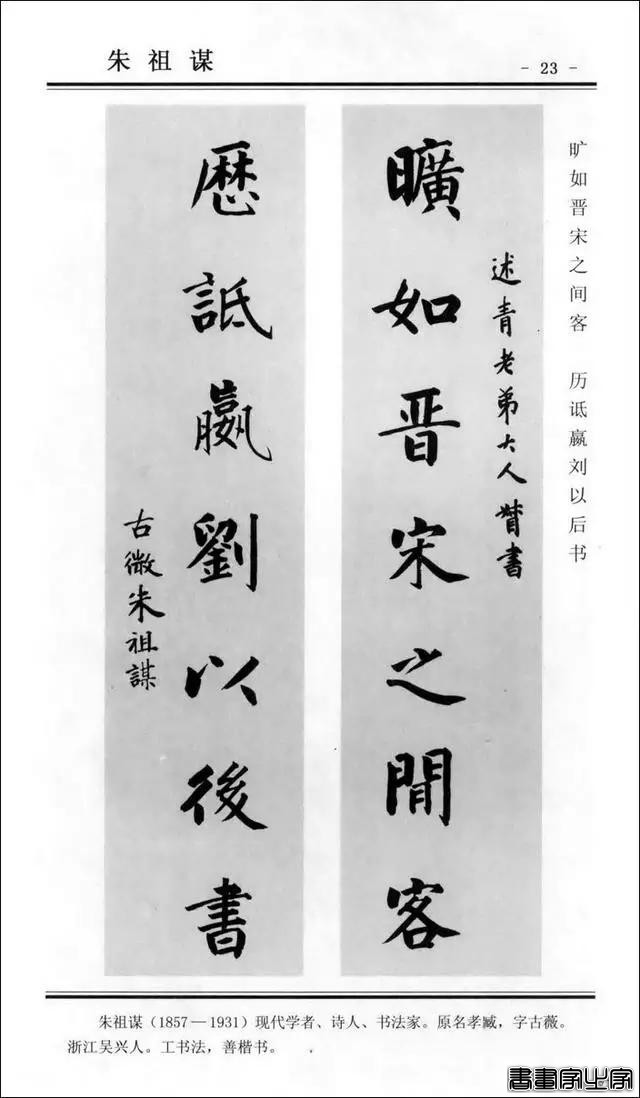 朱祖谋
- 23 -
旷如晋宋之间客 历诋嬴刘以后书
述青老弟大人督書
曠如晋宋之間客
歷詆嬴劉以後書
古微朱祖謀
朱祖谋（1857—1931）现代学者、诗人、书法家。原名孝臧，字古薇。
浙江吴兴人。工书法，善楷书。
書畫家必字